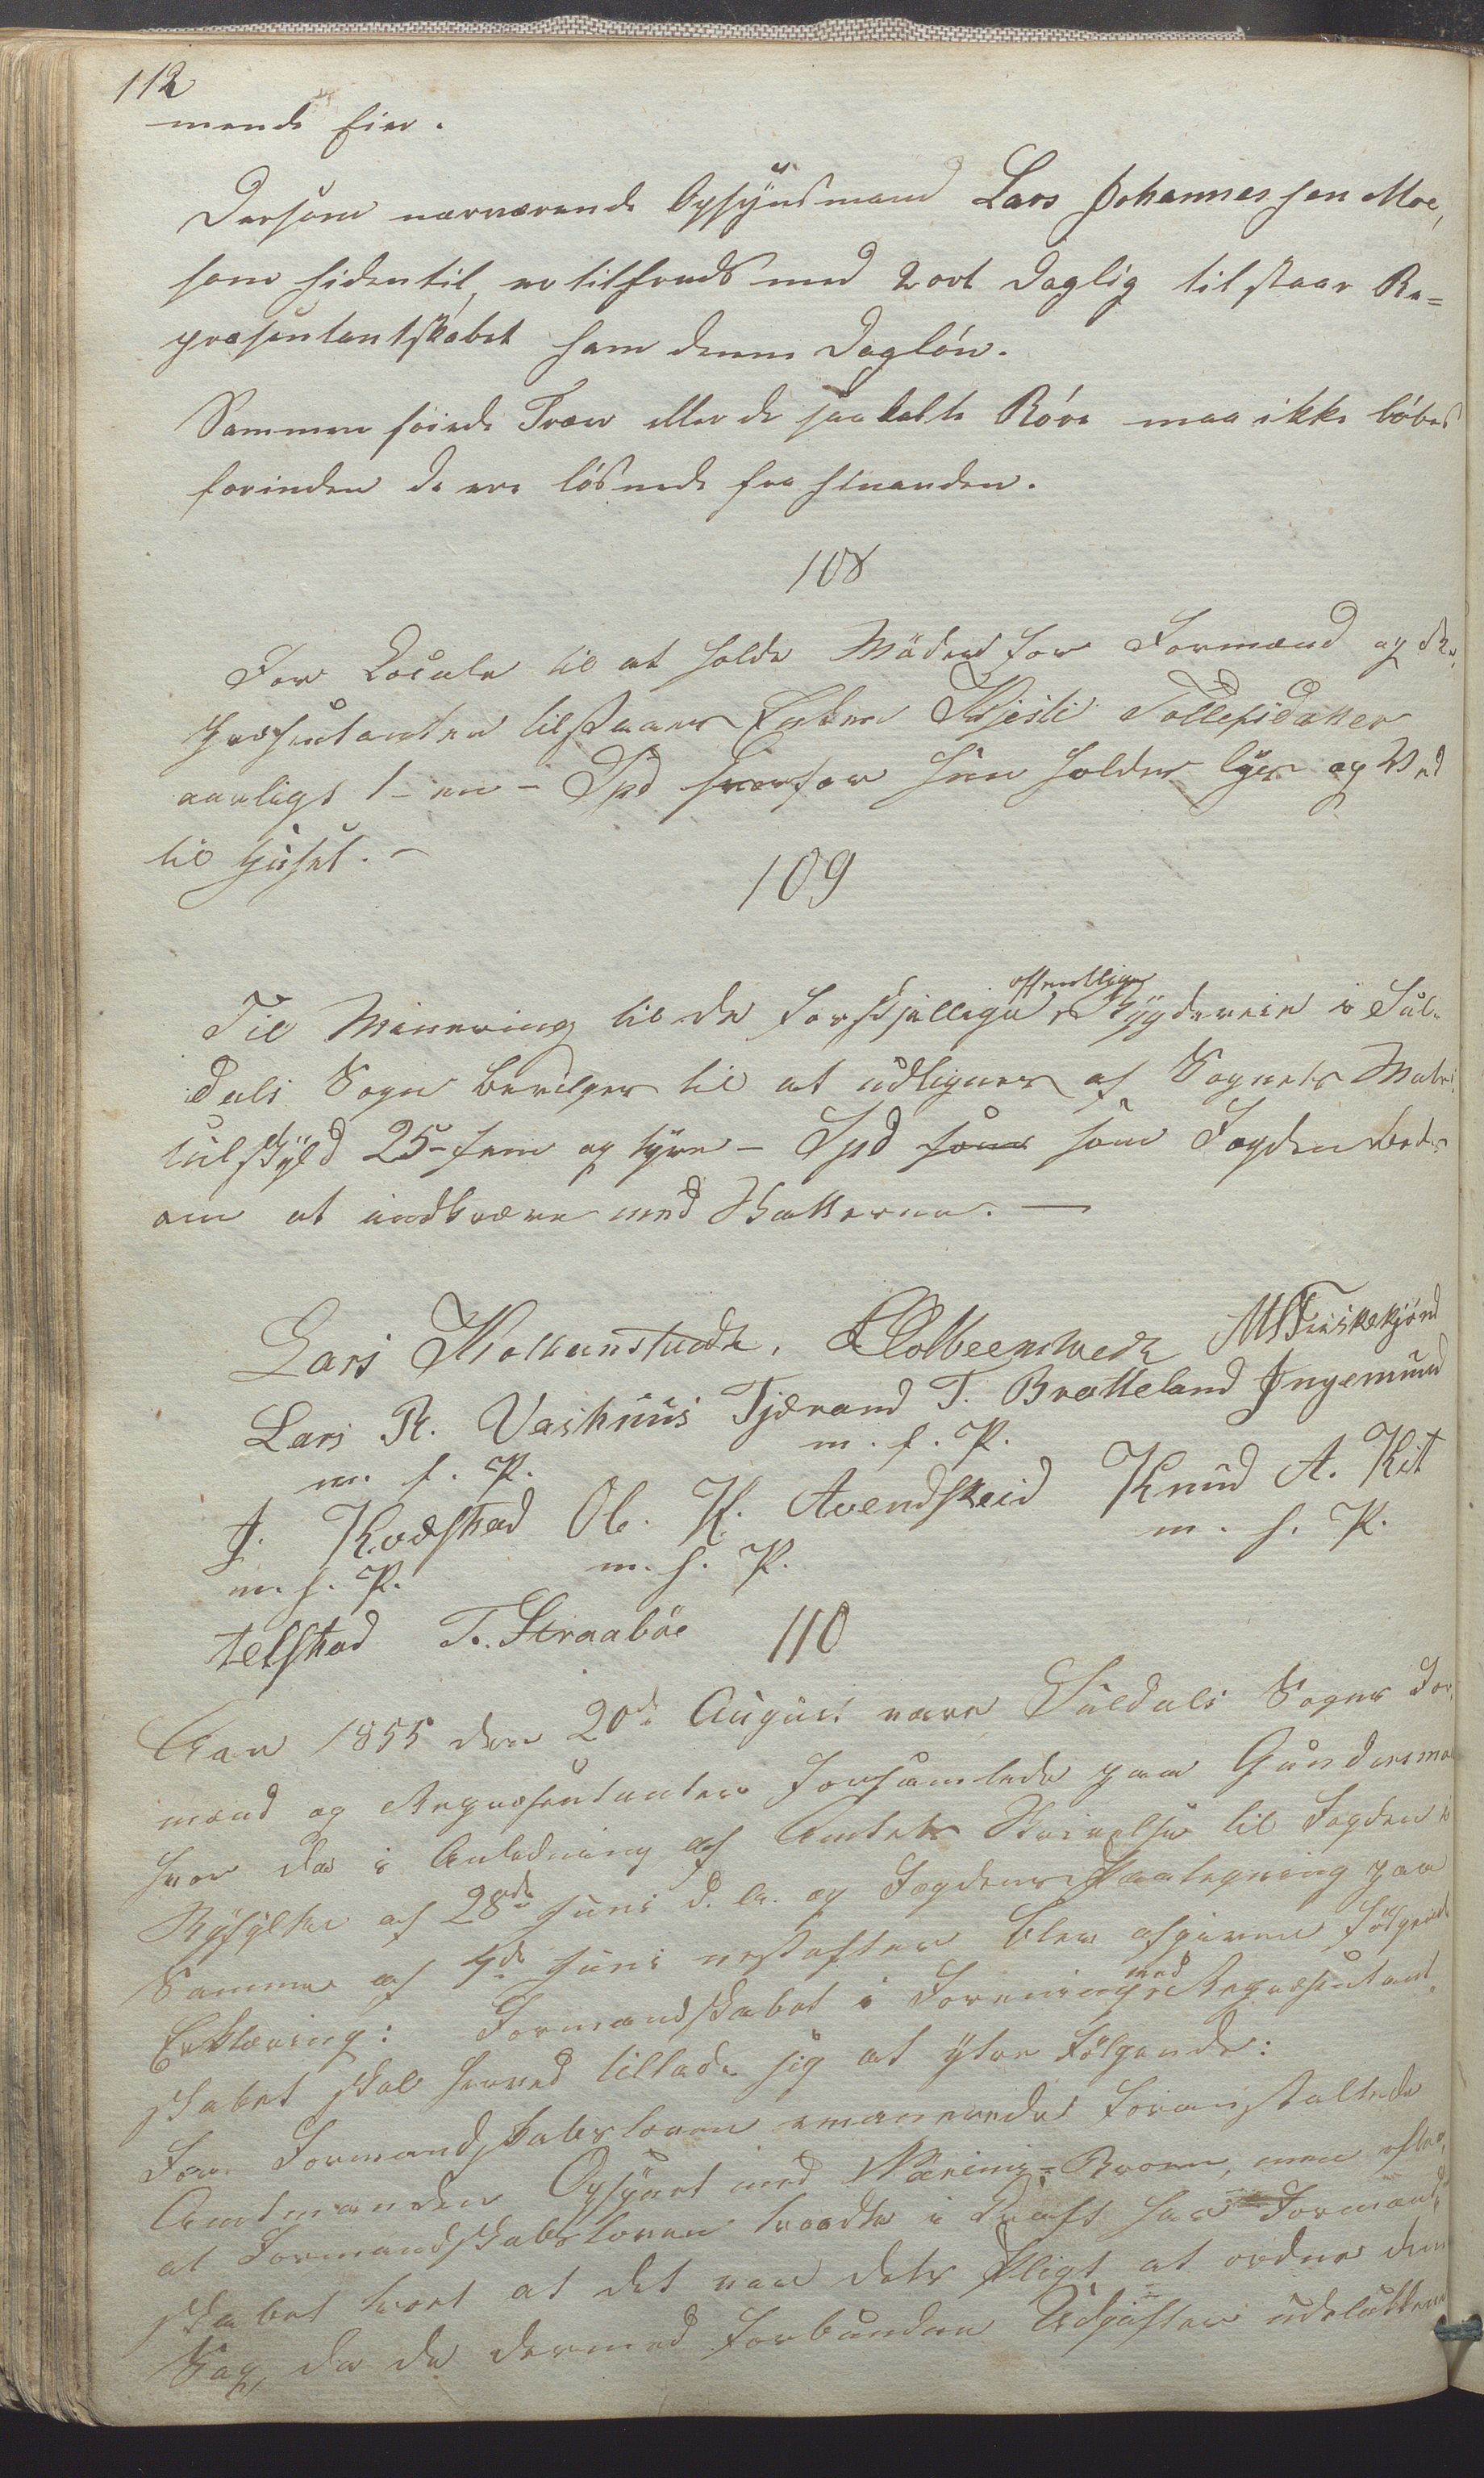 112
mende Eier.
Dersom nærværende Opsynsmand Lars Johannessen Moe,
som hidentil, er tilfreds med 2 ort daglig tilstaar Re-
præsentantskabet ham denne Dagløn.
Sammenføiede Træer eller de saakaldte Røve maa ikke løbes
forinden de ere løsnede fra hinanden.
108
For Locale til at holde Møder for Formænd og Re-
præsentanter tilstaaes Enken Kjesti Tollefsdatter
aarligt 1 - en - Spd hvorfor hun holder Lys og Ved
til Huset. -
109
Til Minering til de forskjellige offentlige Bygdeveie i Sul-
dals Sogn bevilges til at udlignes af Sognets Matri-
kulskyld 25 - fem og tyve - Spd som som Fogden bedes
om at indkræve med Skatterne. -
Lars Kolbenstvedt. Kolbeenstvedt Fiskekjønd
Lars R. Vashuus Tjerand T. Bratteland Ingemund
m. f. P. m. f. P.
J. Kvæstad Ole. K. Avendskeid Knud A. Kit
m. f. P. m. f. P. m. f. P.
telstad T. Straabøe
110
Aar 1855 den 20de August vare Suldals Sogns For-
mænd og Repræsentanter forsamlede paa Gunders
hvor da i Anledning af Amtets Skrivelse til Fogden i
Ryfylke af 28de Juni d. A. og Fogdens Paategning paa
Samme af 7de Juni næstefter blev afgiven følgende
Erklæring: Formandskabet i Forening med Repræsentant-
skabet skal herved tillade sig at ytre Følgende:
Før Formandskabsloven emanerede foranstaltede
Amtmanden Opsynet med Broen, men efter
at Formandskabsloven traadte i Kraft har Formand-
skabet troet at det var dets Pligt at ordne denne
Sag, da de dermed forbundne Udgifter udelukkende